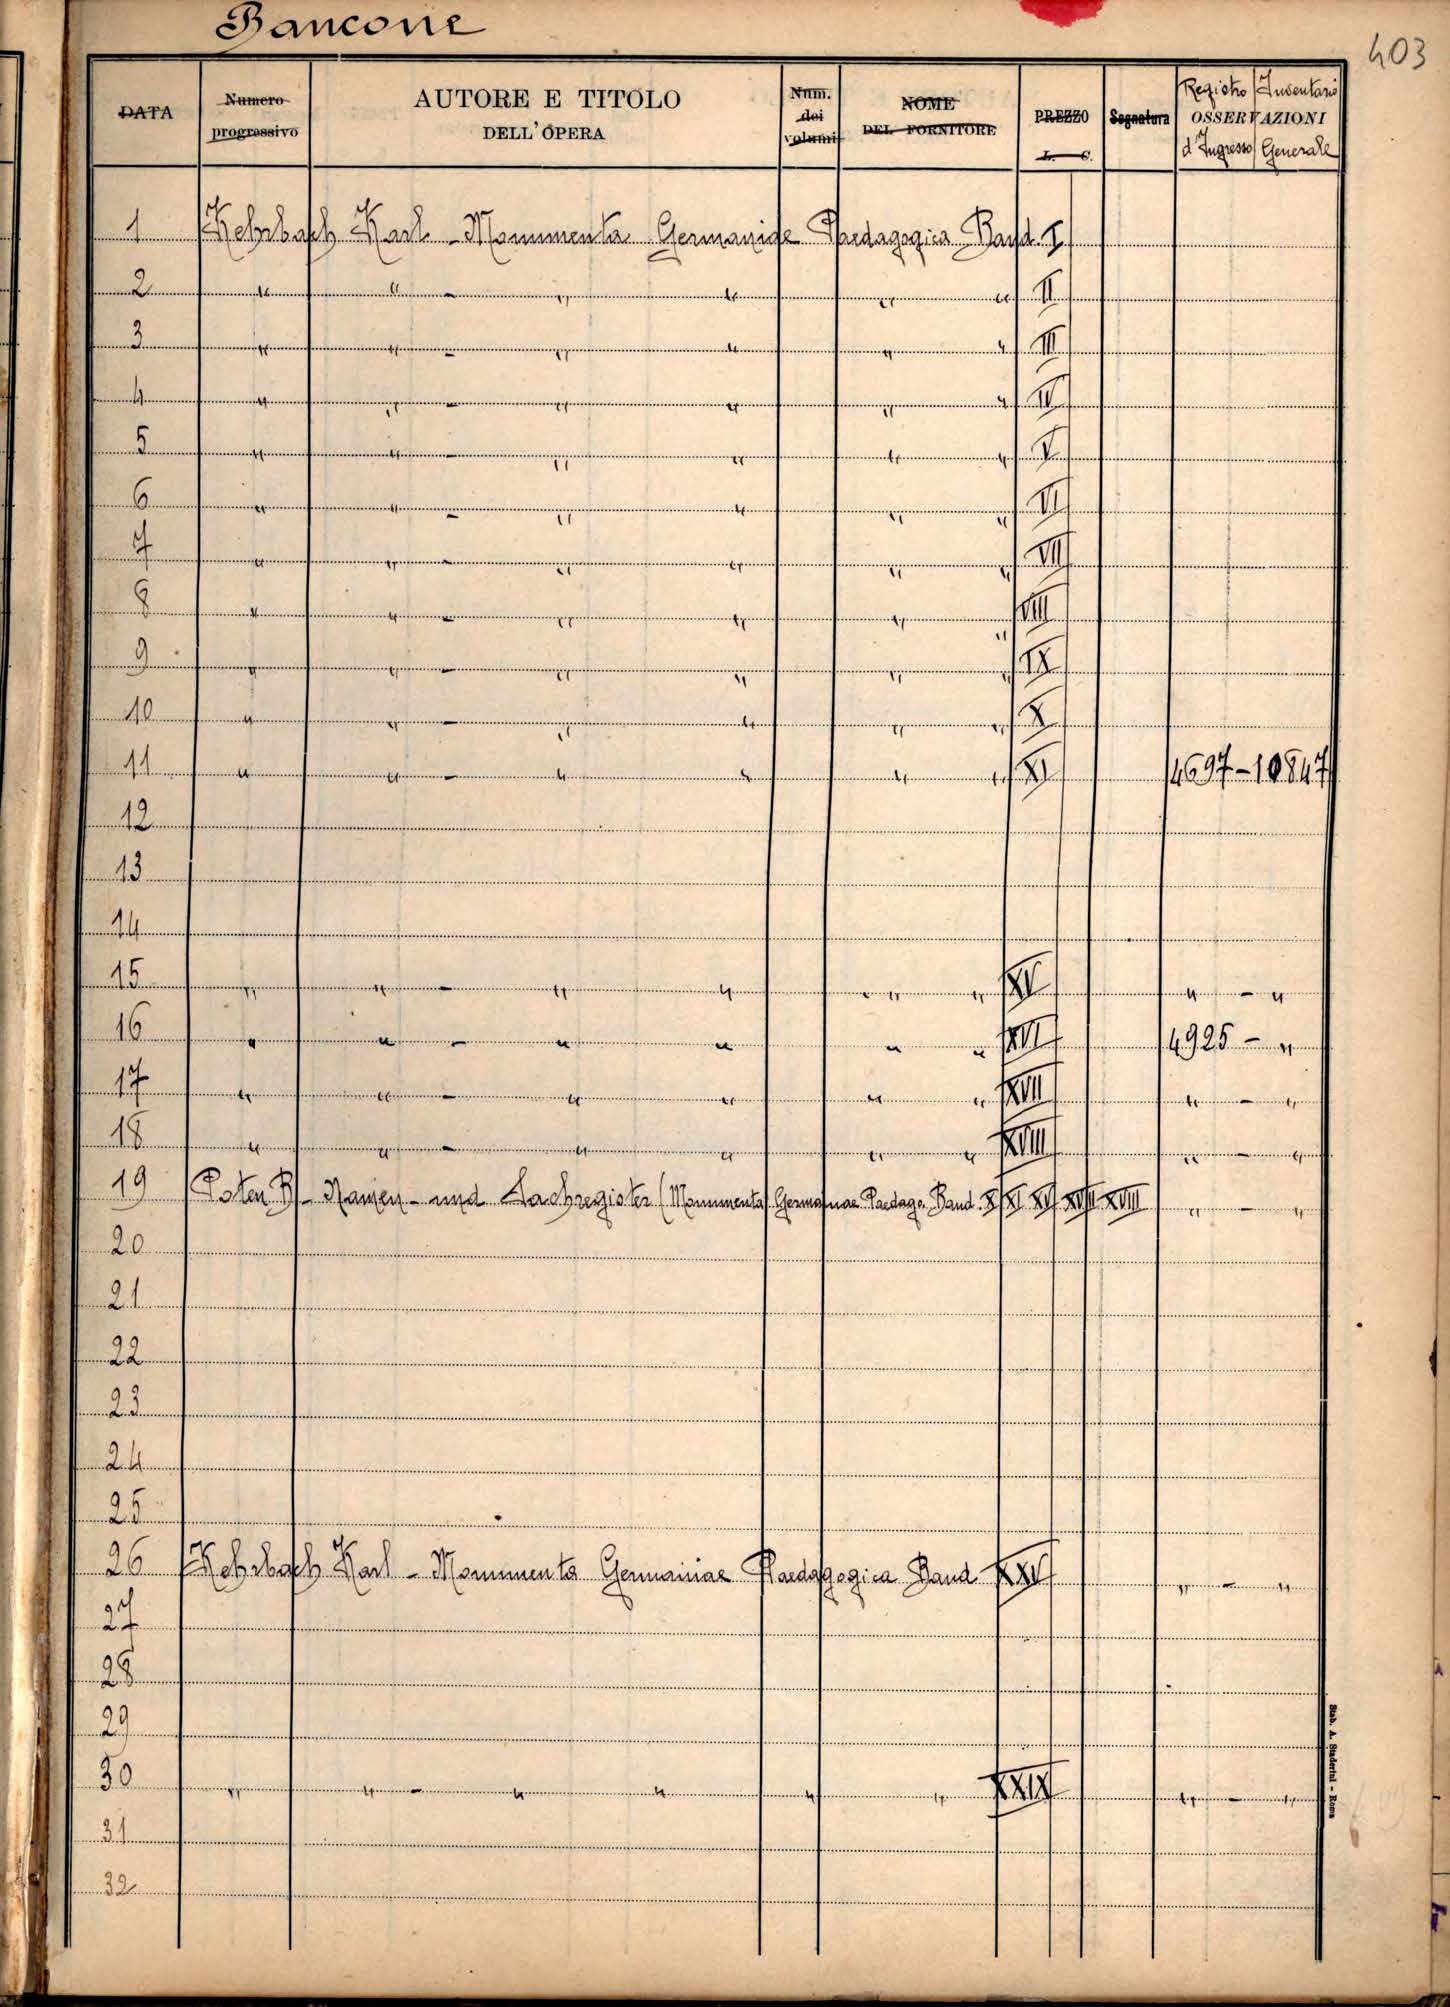 Bancone
403
DATA Numero progressivo AUTORE E TITOLO DELL'OPERA Num. dei volumi NOME DEL FORNITORE PREZZO L. C. Segnatura Registro d'Ingresso Inventario Generale OSSERVAZIONI
1 Kehrbach Karl - Monumenta Germaniae Paedagogica Band. I
2 " " - " " " " II
3 " " - " " " " III
4 " " - " " " " IV
5 " " - " " " " V
6 " " - " " " " VI
7 " " - " " " " VII
8 " " - " " " " VIII
9 " " - " " " " IX
10 " " - " " " " X
11 " " - " " " " XI 4697 - 10847
12
13
14
15 " " - " " " " XV " - "
16 " " - " " " " XVI 4925 - "
17 " " - " " " " XVII " - "
18 " " - " " " " XVIII " - "
19 Poten B - Namen - und Sachregister (Monumenta Germaniae Paedago. Band. X XI XV XVII XVIII " - "
20
21
22
23
24
25
26 Kehrbach Karl - Monumenta Germainiae Paedagogica Band XXV " - "
27
28
29
30 " " - " " " " XXIX " - "
31
32
Stab. A. Staderini - Roma